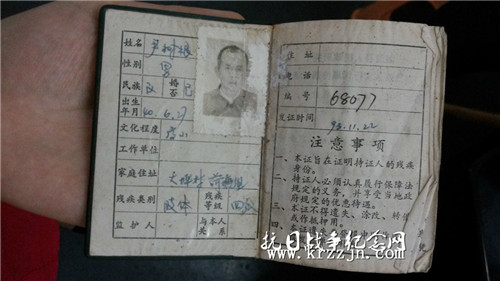 姓名
性别 男
民族 汉 婚否 已
出生年月 40.6.27
文化程度 高小
工作单位
家庭住址
残疾类别 肢体 残疾等级 四级
监护人 与本人关系
住址
电话
编号 68077
发证时间 93.11.22
注意事项
一、本证旨在证明持证人的残疾
身份。
二、持证人必须认真履行保障法
规定的义务，并享受当地政
府规定的优惠待遇。
三、本证不得遗失、涂改、转借
或作抵押用。
四、
抗日战争纪念网
www.krzzjn.com